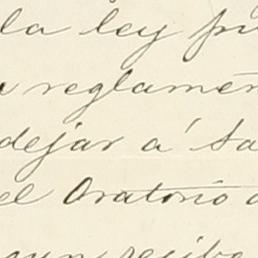 la ley pu
reglamen
dejar a' sa
el Oratorio d
gun recibo